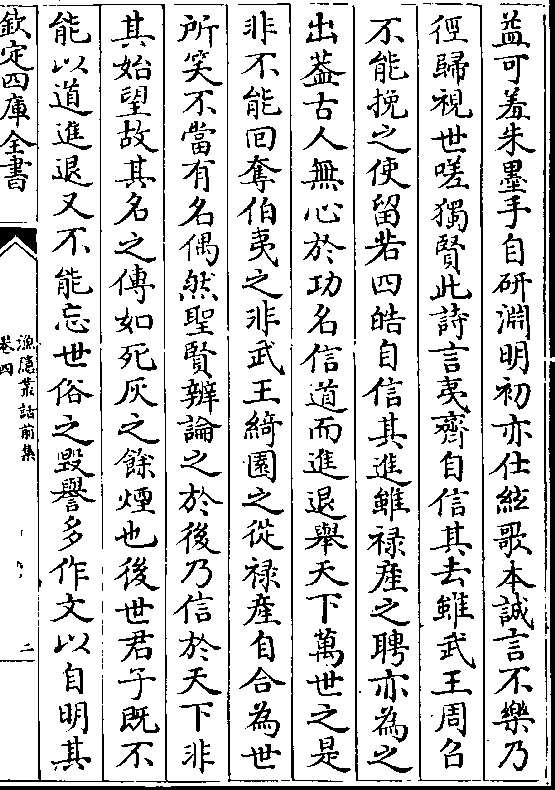 益可羞朱墨手自研淵明初亦仕絃歌本誠言不樂乃
徑歸視世嗟獨賢此詩言夷齊自信其去雖武王周召
不能挽之使留若四皓自信其進雖禄産之聘亦為之
出葢古人無心於功名信道而進退舉天下萬世之是
非不能回奪伯夷之非武王綺園之從禄産自合為世
所笑不當有名偶然聖賢辨論之於後乃信於天下非
其始望故其名之傳如死灰之餘煙也後世君子既不
能以道進退又不能忘世俗之毀譽多作文以自明其
欽定四庫全書
漁隱叢話前集
卷四
二